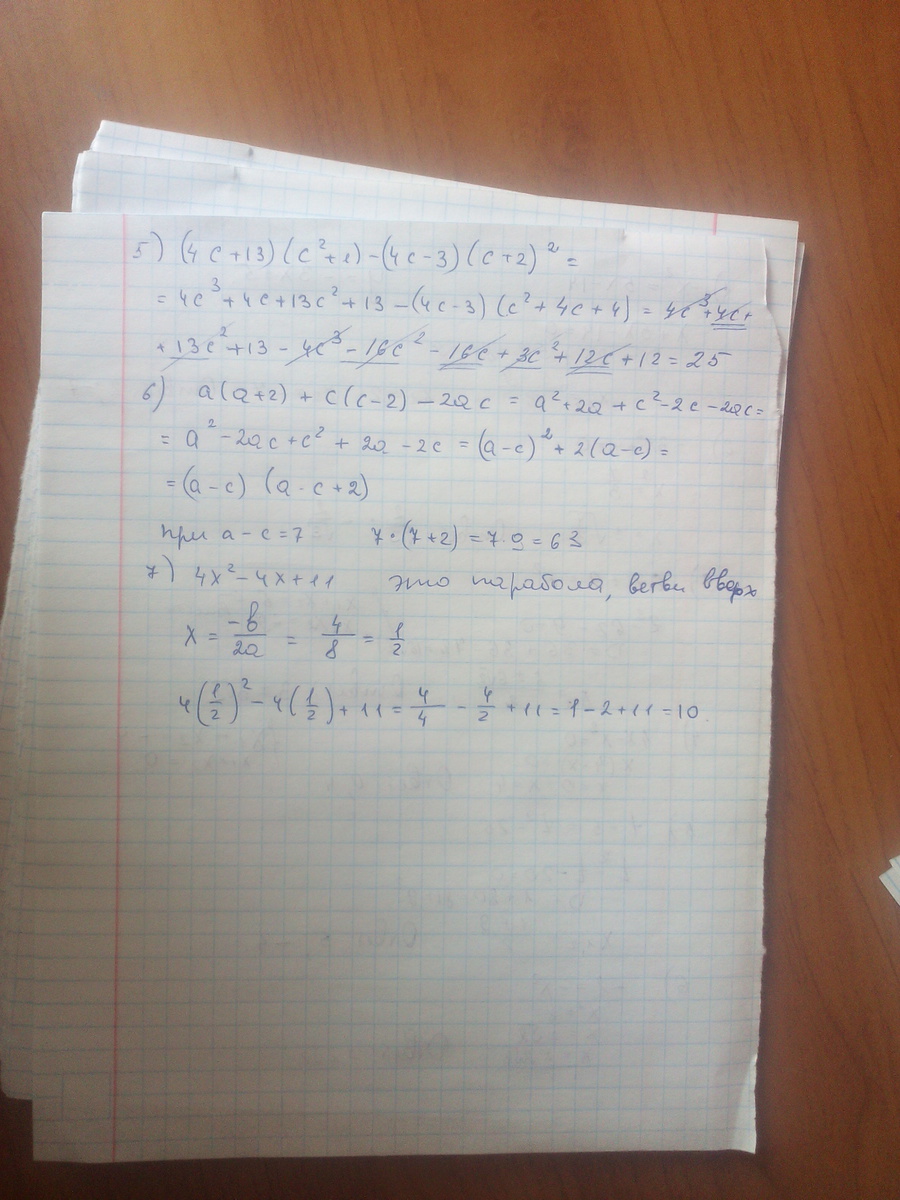 5) (4c+13)(c²+1)-(4c-3)(c+2)²=
=4c³+4c+13c²+13-(4c-3)(c²+4c+4)=4c³+4c+
+13c²+13-4c³-16c²-16c+3c²+12c+12=25
6) a(a+2)+c(c-2)-2ac=a²+2a+c²-2c-2ac=
=a²-2ac+c²+2a-2c=(a-c)²+2(a-c)=
=(a-c)(a-c+2)
при a-c=7 7·(7+2)=7·9=63
7) 4x²-4x+11 это парабола, ветви вверх
x=-b/2a=4/8=1/2
4(1/2)²-4(1/2)+11=4/4-4/2+11=1-2+11=10.